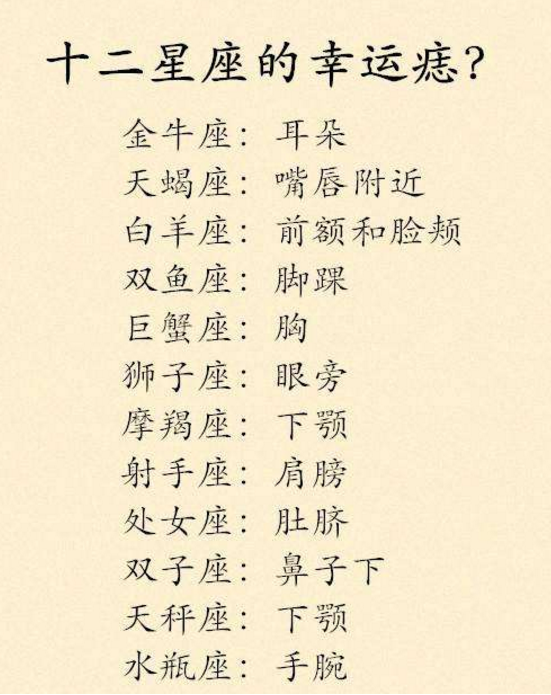 十二星座的幸运痣?
金牛座：耳朵
天蝎座：嘴唇附近
白羊座：前额和脸颊
双鱼座：脚踝
巨蟹座：胸
狮子座：眼旁
摩羯座：下颚
射手座：肩膀
处女座：肚脐
双子座：鼻子下
天秤座：下颚
水瓶座：手腕